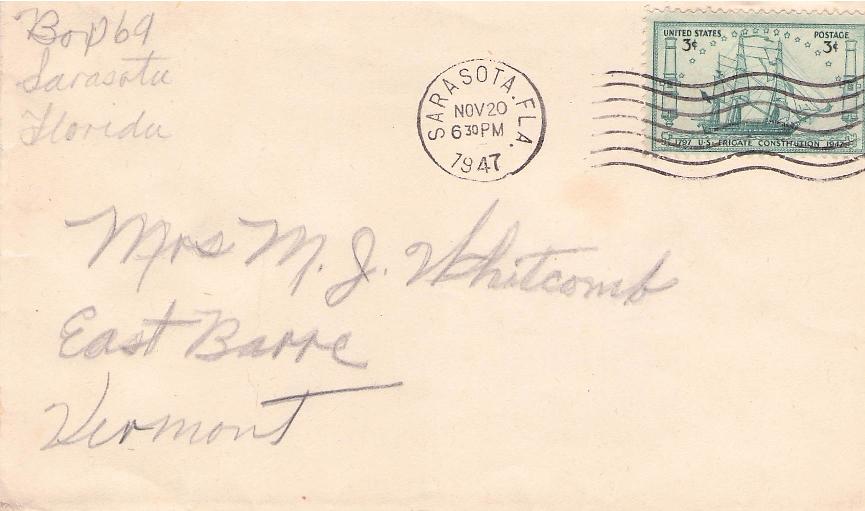 Box 69
Sarasota
Florida
SARASOTA. FLA.
NOV 20
6 30 PM
1947
UNITED STATES POSTAGE
3¢ 3¢
1797 U.S. FRIGATE CONSTITUTION 1947
Mrs M. J. Whitcomb
East Barre
Vermont